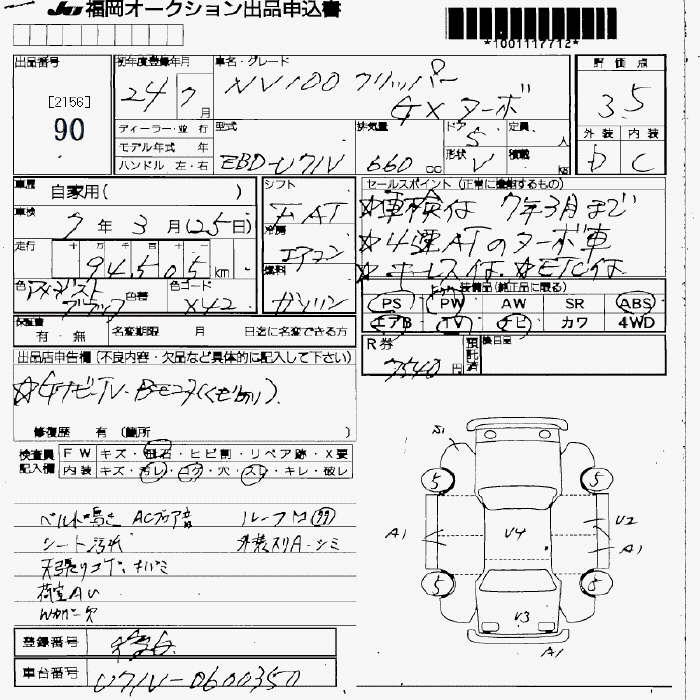 JU 福岡オークション出品申込書
*1001117712*
出品番号
[2156]
90
初年度登録年月
24 7月
車名・グレード
NV100 クリッパー
GXターボ
評価点
3.5
外装 内装
D C
ディーラー・並行
モデル年式 年
ハンドル 左・右
型式
EBD-U71V
排気量
660 cc
ドア
5
定員 人
形状
V
積載 kg
車歴
自家用( )
車検
7年 3月(25日)
走行
十 万 千 百 十 一
94,505 km
色
アメジスト
ブラック
色替
色コード
X42
シフト
FAT
冷房
エアコン
燃料
ガソリン
セールスポイント(正常に機能するもの)
☆車検付 7年3月まで
☆4速ATのターボ車
☆キーレス付 ☆ETC付
装備品(純正品に限る)
PS PW AW SR ABS
エアB TV ナビ カワ 4WD
保証書
有・無
名変期限 月 日迄に名変できる方
R券
7540円
預託済
出品店申告欄(不良内容・欠品など具体的に記入して下さい)
修復歴 有 (箇所 )
検査員
記入欄
FW キズ・飛石・ヒビ割・リペア跡・X要
内装 キズ・汚レ・コゲ・穴・スレ・キレ・破レ
ベルト鳴き ACブロア音 ルーフM
シート汚れ 外装スリA・シミ
天張りコゲ、キバミ
荷室AU
Wカバー欠
S1
5
5
A1
V4
U2
A1
5
5
V3
A1
登録番号
車台番号
U71V-0600350